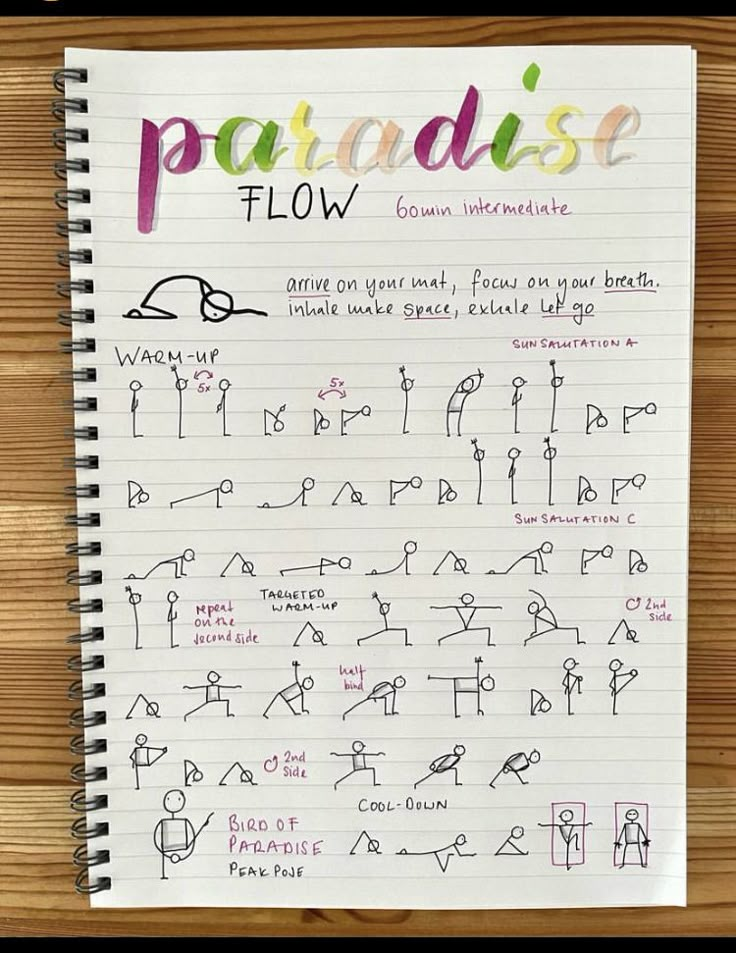 paradise
FLOW 60min intermediate
arrive on your mat, focus on your breath.
inhale make space, exhale let go
WARM-UP
SUN SALUTATION A
5x
5x
SUN SALUTATION C
repeat
on the
second side
TARGETED
WARM-UP
2nd
side
half
bind
2nd
side
BIRD OF
PARADISE
PEAK POSE
COOL-DOWN